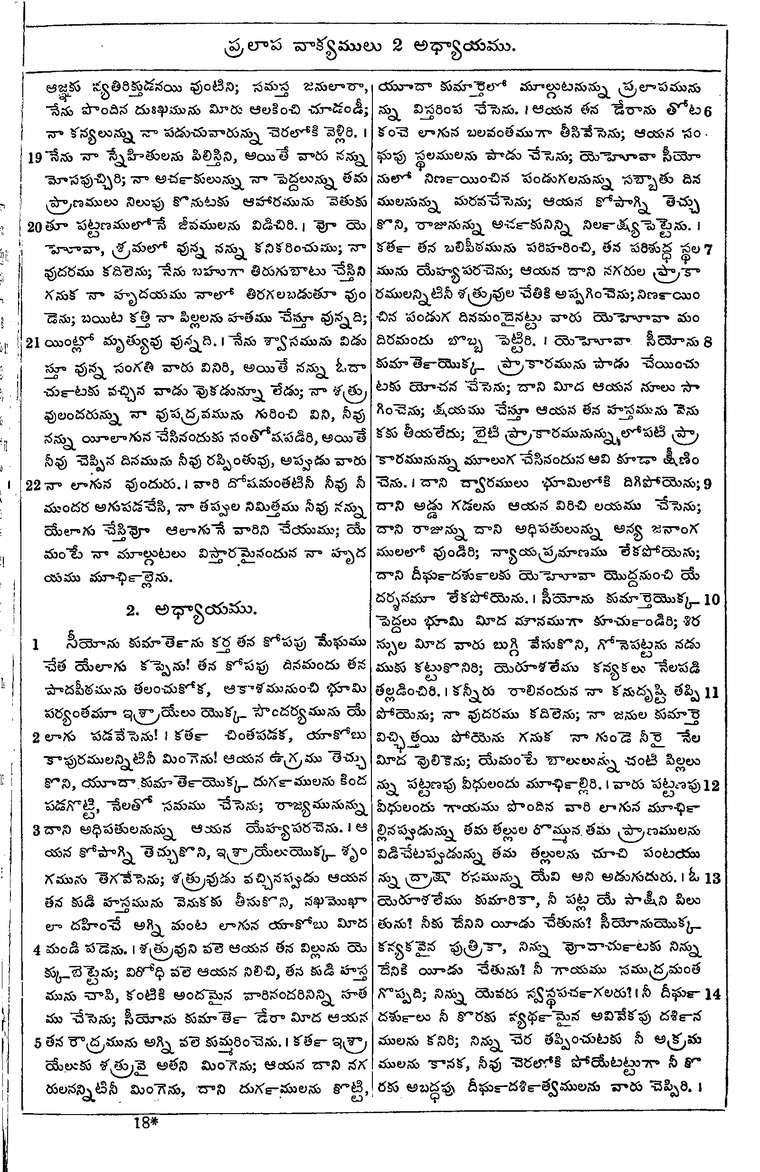 ప్రలాప వాక్యములు 2 అధ్యాయము.
ఆజ్ఞకు వ్యతిరిక్తుడనయి వుంటిని; సమస్త జనులారా,
నేను పొందిన దుఃఖమును మీరు ఆలకించి చూడండీ;
నా కన్యలున్ను నా పడుచువారున్ను చెరలోకి వెళ్లిరి. ।
19 నేను నా స్నేహితులను పిలిస్తిని, అయితే వారు నన్ను
మోసపుచ్చిరి; నా అర్చకులున్ను నా పెద్దలున్ను తమ
ప్రాణములు నిలుపు కొనుటకు ఆహారమును వెతుకు
20 తూ పట్టణములోనే జీవములను విడిచిరి. । వో యె
హోవా, శ్రమలో వున్న నన్ను కనికరించుము; నా
వుదరము కదిలెను; నేను బహుగా తిరుగుబాటు చేస్తిని
గనుక నా హృదయము నాలో తిరగలబడుతూ వుం
డెను; బయిట కత్తి నా పిల్లలను హతము చేస్తూ వున్నది;
21 యింట్లో మృత్యువు వున్నది. । నేను శ్వాసమును విడు
స్తూ వున్న సంగతి వారు వినిరి, అయితే నన్ను ఓదా
ర్చుటకు వచ్చిన వాడు వొకడున్నూ లేడు; నా శత్రు
వులందరున్ను నా వుపద్రవమును గురించి విని, నీవు
నన్ను యీలాగున చేసినందుకు సంతోషపడిరి, అయితే
నీవు చెప్పిన దినమును నీవు రప్పింతువు, అప్పుడు వారు
22 నా లాగున వుందురు. । వారి దోషమంతటినీ నీవు నీ
ముందర అగుపడచేసి, నా తప్పుల నిమిత్తము నీవు నన్ను
యేలాగు చేస్తివో ఆలాగునే వారిని చేయుము; యే
మంటే నా మూల్గుటలు విస్తారమైనందున నా హృద
యము మూర్ఛిల్లెను.
2. అధ్యాయము.
1 సీయోను కుమార్తెను కర్త తన కోపపు మేఘము
చేత యేలాగు కప్పెను! తన కోపపు దినమందు తన
పాదపీఠమును తలంచుకోక, ఆకాశమునుంచి భూమి
పర్యంతమూ ఇశ్రాయేలు యొక్క సౌందర్యమును యే
2 లాగు పడవేసెను! । కర్త చింతపడక, యాకోబు
కాపురములన్నిటినీ మింగెను! ఆయన ఉగ్రము తెచ్చు
కొని, యూదా కుమార్తెయొక్క దుర్గములను కింద
పడగొట్టి, నేలతో సమము చేసెను; రాజ్యమునున్ను
3 దాని అధిపతులనున్ను ఆయన యేహ్యపరచెను. । ఆ
యన కోపాగ్ని తెచ్చుకొని, ఇశ్రాయేలుయొక్క శృం
గమును తెగవేసెను; శత్రువుడు వచ్చినప్పుడు ఆయన
తన కుడి హస్తమును వెనుకకు తీసుకొని, నఖముఖా
లా దహించే అగ్ని మంట లాగున యాకోబు మీద
4 మండి పడెను. । శత్రువుని వలె ఆయన తన విల్లును యె
క్కుబెట్టెను; విరోధి వలె ఆయన నిలిచి, తన కుడి హస్త
మును చాపి, కంటికి అందమైన వారినందరినిన్ని హత
ము చేసెను; సీయోను కుమార్తె డేరా మీద ఆయన
5 తన రౌద్రమును అగ్ని వలె కుమ్మరించెను. । కర్త ఇశ్రా
యేలుకు శత్రువై అతని మింగెను; ఆయన దాని నగ
రులనన్నిటినీ మింగెను, దాని దుర్గములను కొట్టి,
యూదా కుమార్తెలో మూల్గుటనున్ను ప్రలాపమును
న్ను విస్తరింప చేసెను. । ఆయన తన డేరాను తోట 6
కంచె లాగున బలవంతముగా తీసివేసెను; ఆయన సం
ఘపు స్థలములను పాడు చేసెను; యెహోవా సీయో
నులో నిర్ణయించిన పండుగలనున్ను సబ్బాతు దిన
ములనున్ను మరవచేసెను; ఆయన కోపాగ్ని తెచ్చు
కొని, రాజునున్ను అర్చకునిన్ని నిర్లక్ష్యపెట్టెను. ।
కర్త తన బలిపీఠమును పరిహరించి, తన పరిశుద్ధ స్థల 7
మును యేహ్యపరచెను; ఆయన దాని నగరుల ప్రాకా
రములన్నిటినీ శత్రువుల చేతికి అప్పగించెను; నిర్ణయిం
చిన పండుగ దినమందైనట్టు వారు యెహోవా మం
దిరమందు బొబ్బ పెట్టిరి. । యెహోవా సీయోను 8
కుమార్తెయొక్క ప్రాకారమును పాడు చేయించు
టకు యోచన చేసెను; దాని మీద ఆయన నూలు సా
గించెను; క్షయము చేస్తూ ఆయన తన హస్తమును వెను
కకు తీయలేదు; బైటి ప్రాకారమునున్ను లోపటి ప్రా
కారమునున్ను మూలుగ చేసినందున అవి కూడా క్షీణిం
చెను. । దాని ద్వారములు భూమిలోకి దిగిపోయెను; 9
దాని అడ్డు గడలను ఆయన విరిచి లయము చేసెను;
దాని రాజున్ను దాని అధిపతులున్ను అన్య జనాంగ
ములలో వుండిరి; న్యాయప్రమాణము లేకపోయెను;
దాని దీర్ఘదర్శులకు యెహోవా యొద్దనుంచి యే
దర్శనమూ లేకపోయెను. । సీయోను కుమార్తెయొక్క 10
పెద్దలు భూమి మీద మానముగా కూర్చుండిరి; శిర
స్సుల మీద వారు బుగ్గి వేసుకొని, గోనెపట్టను నడు
ముకు కట్టుకొనిరి; యెరూశలేము కన్యకలు నేలపడి
తల్లడించిరి. । కన్నీరు రాలినందున నా కనుదృష్టి తప్పి 11
పోయెను; నా వుదరము కదిలెను; నా జనుల కుమార్తె
విచ్ఛిత్తయి పోయెను గనుక నా గుండె నీరై నేల
మీద వొలికెను; యేమంటే బాలులున్ను చంటి పిల్లలు
న్ను పట్టణపు వీధులందు మూర్ఛిల్లిరి. । వారు పట్టణపు 12
వీధులందు గాయము పొందిన వారి లాగున మూర్ఛి
ల్లినప్పుడున్ను తమ తల్లుల రొమ్మున తమ ప్రాణములను
విడిచేటప్పుడున్ను తమ తల్లులను చూచి పంటయు
న్ను ద్రాక్షా రసమున్ను యేవి అని అడుగుదురు. । ఓ 13
యెరూశలేము కుమారికా, నీ పట్ల యే సాక్షిని పిలు
తును? నీకు దేనిని యీడు చేతును? సీయోనుయొక్క
కన్యకవైన పుత్రికా, నిన్ను వోదార్చుటకు నిన్ను
దేనికి యీడు చేతును? నీ గాయము సముద్రమంత
గొప్పది; నిన్ను యెవరు స్వస్థపర్చగలరు? । నీ దీర్ఘ 14
దర్శులు నీ కొరకు వ్యర్థమైన అవివేకపు దర్శన
ములను కనిరి; నిన్ను చెర తప్పించుటకు నీ అక్రమ
ములను కానక, నీవు చెరలోకి పోయేటట్టుగా నీ కొ
రకు అబద్ధపు దీర్ఘదర్శిత్వములను వారు చెప్పిరి. ।
18*